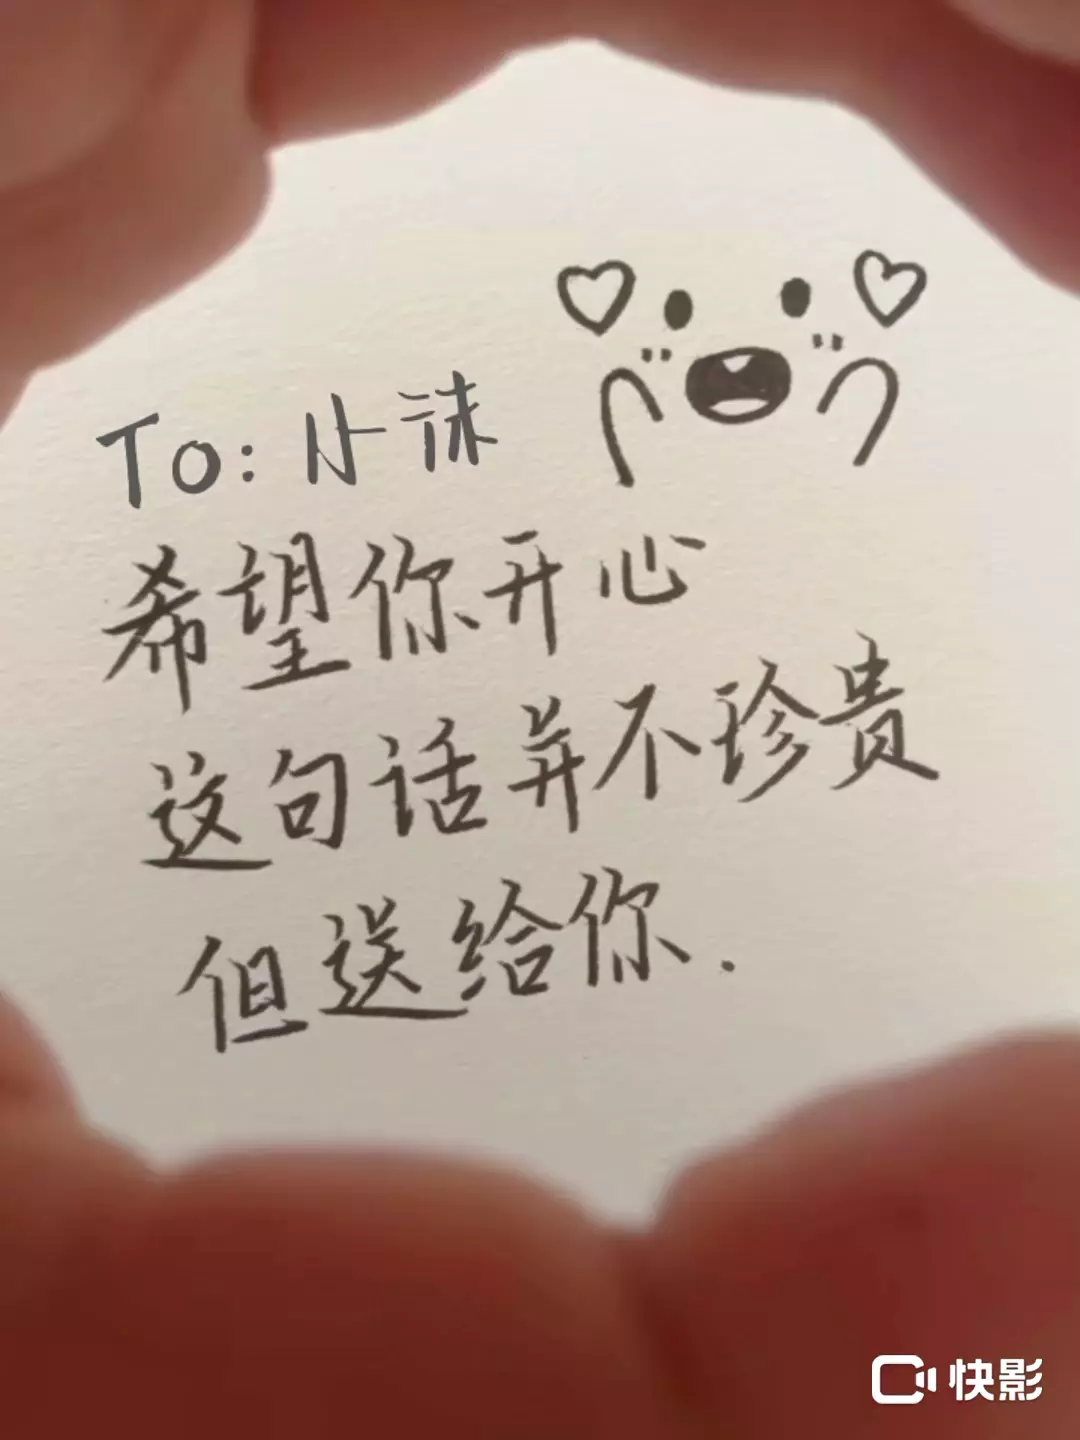 To:小袜
希望你开心
这句话并不珍贵
但送给你.
快影